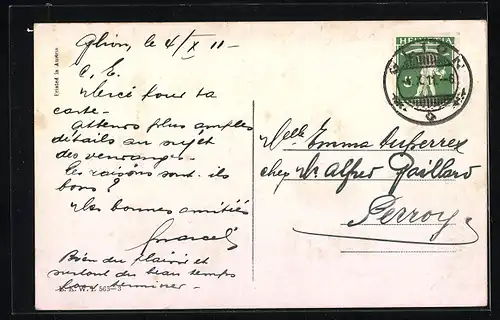 Glion, le 4/X 11-
C. E.
Merci pour ta
carte-
Attends plus amples
détails au sujet
des vendanges-
Les raisins sont-ils
bons?
Mes bonnes amitiés
Marcel
Bien du plaisir et
surtout du beau temps
pour terminer-
E. K. W. Z. 565-3
Printed in Austria
HELVETIA
GLION
4.X.11-8
Melle Emma Duferrex
chez Mr Alfred Gaillard
Perroy